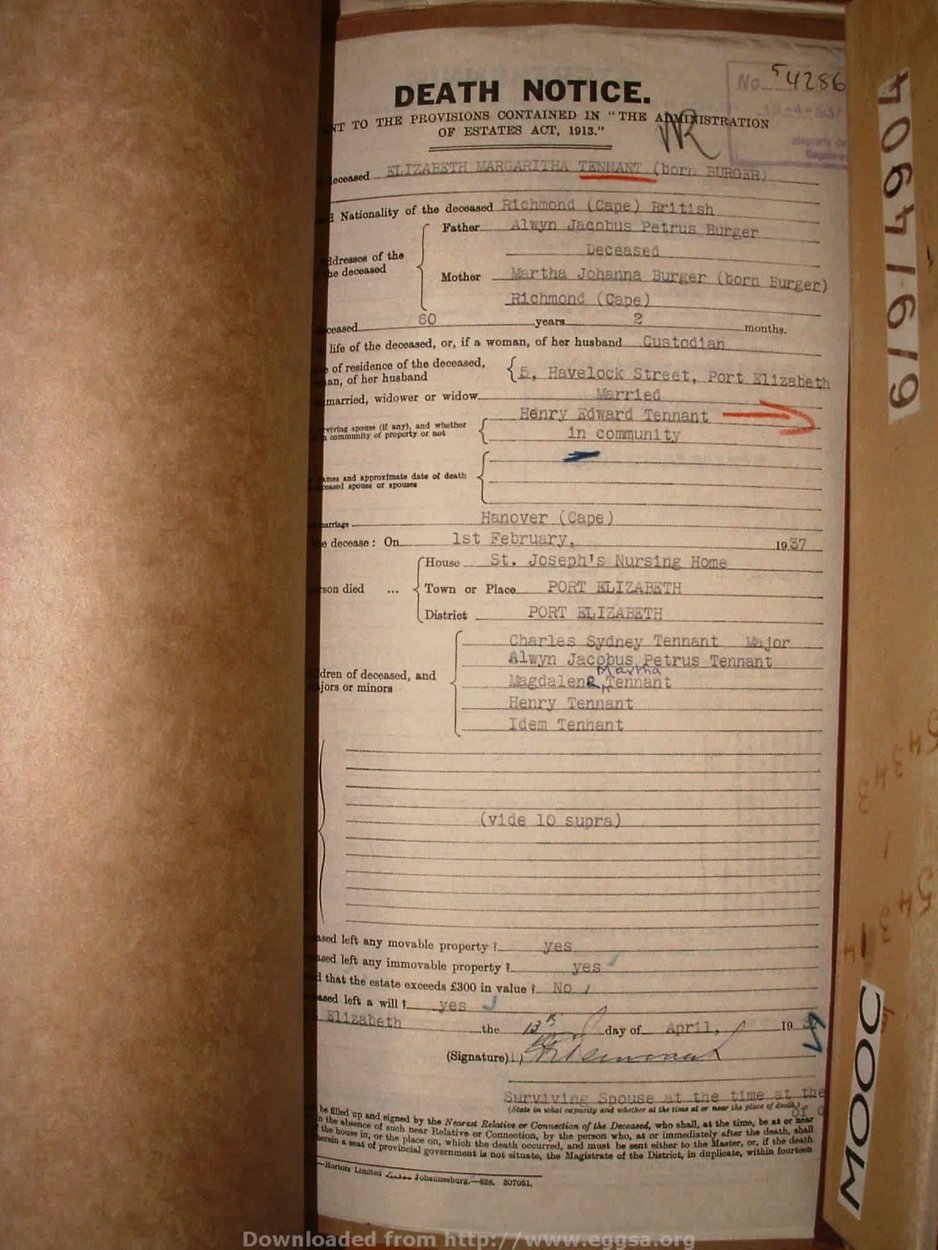 No. 54286
DEATH NOTICE.
NT TO THE PROVISIONS CONTAINED IN "THE ADMINISTRATION
OF ESTATES ACT, 1913."
deceased ELIZABETH MARGARITHA TENNANT (born BURGER)
Nationality of the deceased Richmond (Cape) British
Father Alwyn Jacobus Petrus Burger
Deceased
ddresses of the
he deceased
Mother Martha Johanna Burger (born Burger)
Richmond (Cape)
ceased 60 years 2 months.
life of the deceased, or, if a woman, of her husband Custodian
of residence of the deceased,
an, of her husband
5, Havelock Street, Port Elizabeth
married, widower or widow Married
Henry Edward Tennant
rviving spouse (if any), and whether
n community of property or not
in community
ames and approximate date of death
ceased spouse or spouses
marriage Hanover (Cape)
e decease: On 1st February, 1937
House St. Joseph's Nursing Home
rson died ... Town or Place PORT ELIZABETH
District PORT ELIZABETH
Charles Sydney Tennant Major
Alwyn Jacobus Petrus Tennant
dren of deceased, and
jors or minors
Martha
Magdalena Tennant
Henry Tennant
Idem Tennant
(vide 10 supra)
ased left any movable property? yes
ased left any immovable property? yes
d that the estate exceeds £300 in value? No
ased left a will? yes
Elizabeth the 13th day of April, 19
(Signature)
Surviving Spouse at the time at the
(State in what capacity and whether at the time at or near the place of death.)
be filled up and signed by the Nearest Relative or Connection of the Deceased, who shall, at the time, be at or near
n the absence of such near Relative or Connection, by the person who, at or immediately after the death, shall
the house in, or the place on, which the death occurred, and must be sent either to the Master, or, if the death
herein a seat of provincial government is not situate, the Magistrate of the District, in duplicate, within fourteen
—Hortors Limited Johannesburg.—628. 207051.
MOOC
6/9/4904
Downloaded from http://www.eggsa.org